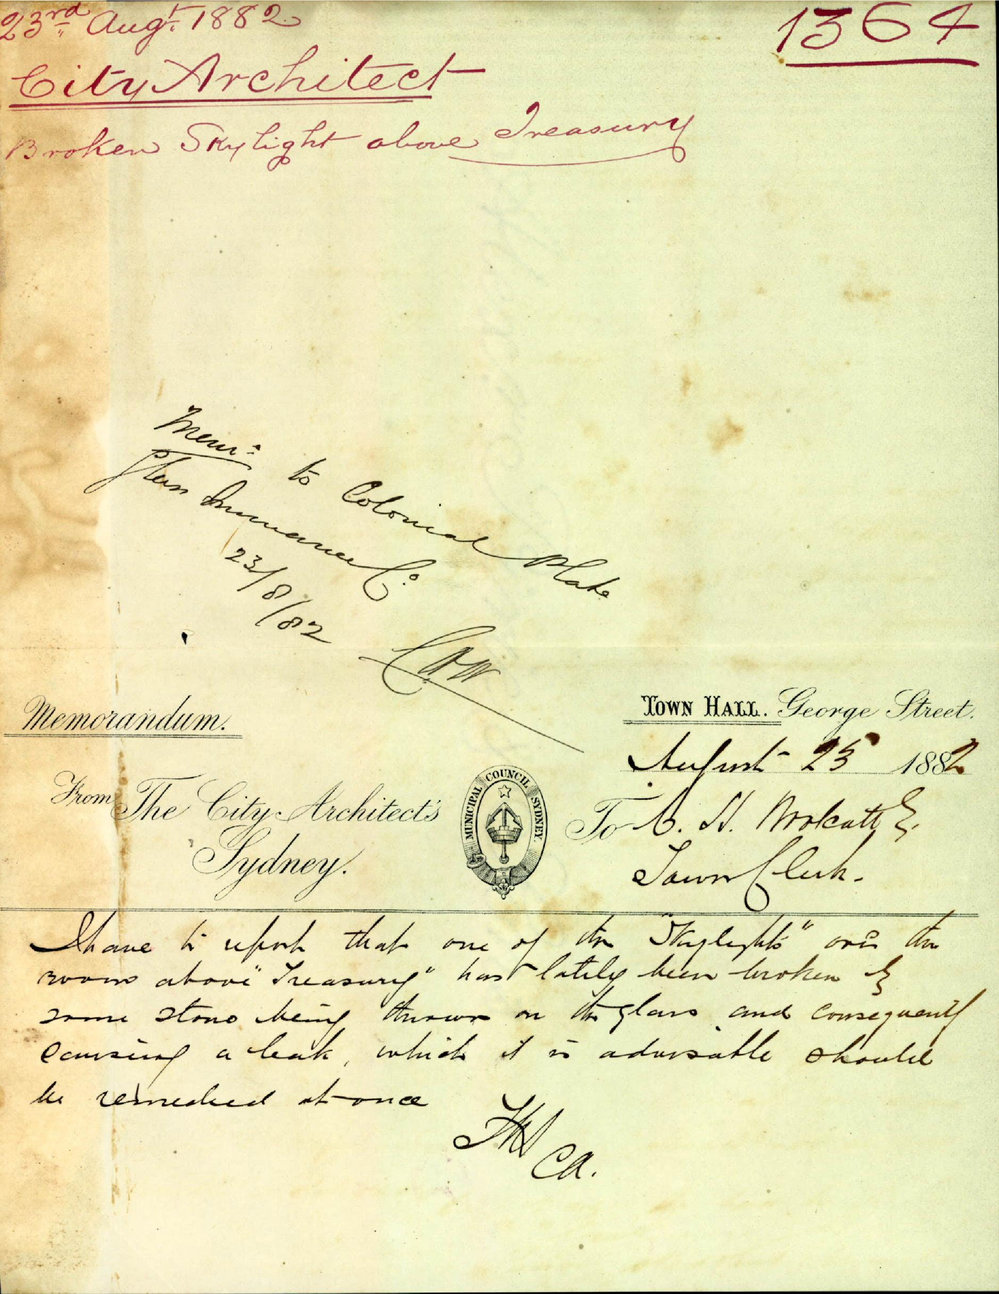 23rd Augt. 1882.
1364
City Architect
Broken Skylight above Treasury
Memo: to Colonial Plate
Glass Insurance Co
23/8/82
CHW
Memorandum.
Town Hall. George Street.
August 23 1882
From The City Architect's
Sydney.
MUNICIPAL COUNCIL SYDNEY
To C. H. Woolcott Es.
Town Clerk.
I have to report that one of the "Skylights" over the
rooms above "Treasury" has lately been broken by
some stone being thrown on the glass and consequently
causing a leak, which it is advisable should
be remedied at once
CA.